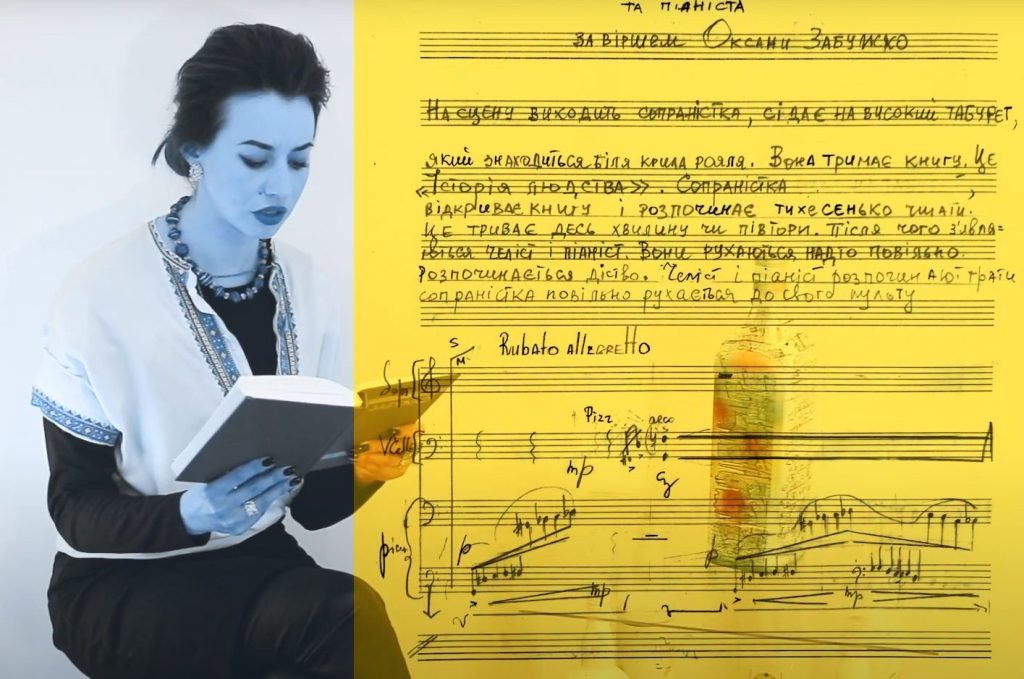 та піаніста
за віршем Оксани Забужко
На сцену виходить сопраністка, сідає на високий табурет,
який знаходиться біля крила рояля. Вона тримає книгу. Це
«Історія людства». Сопраністка ,
відкриває книгу і розпочинає тихесенько читати.
Це триває десь хвилину чи півтори. Після чого з'явля-
ються челіст і піаніст. Вони рухаються надто повільно.
Розпочинається дійство. Челіст і піаніст розпочинають грати
сопраністка повільно рухається до свого пульту
S
M.
Rubato allegretto
Sopr
Pizz arco
V-Cello
mp
p
p
mp mp